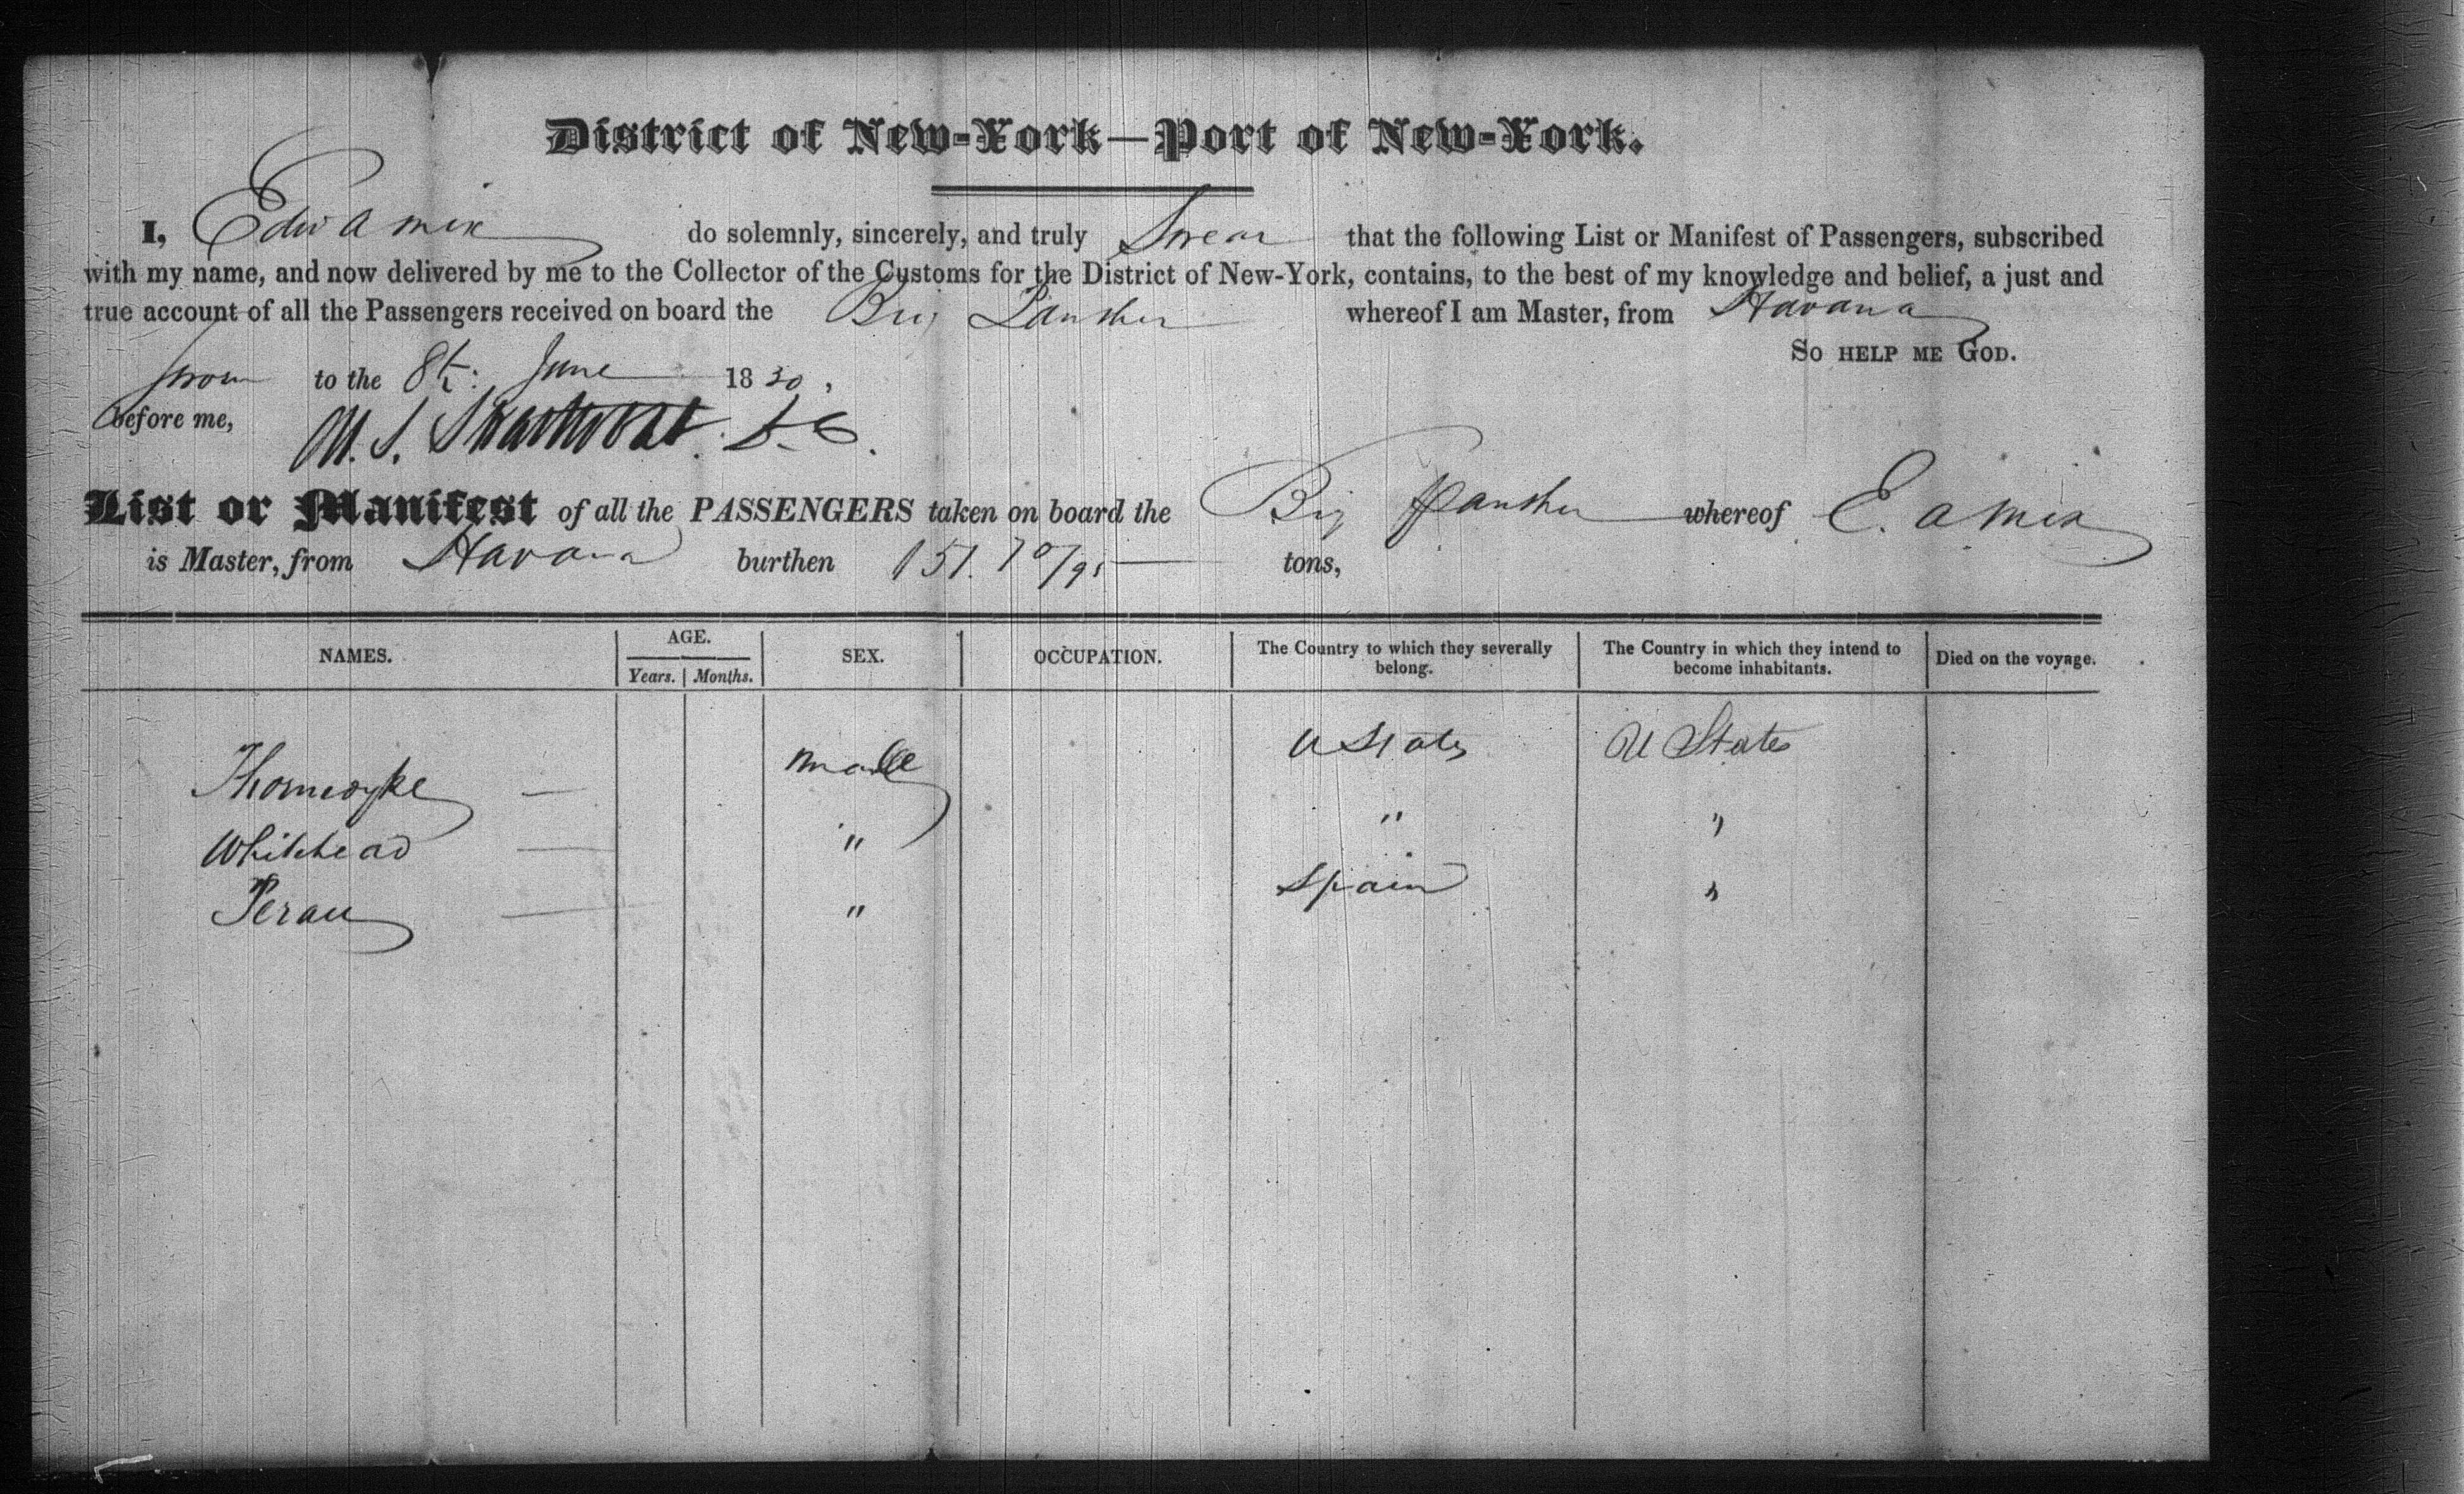 District of New-York—Port of New-York.
I, Edw A Mix do solemnly, sincerely, and truly Swear that the following List or Manifest of Passengers, subscribed
with my name, and now delivered by me to the Collector of the Customs for the District of New-York, contains, to the best of my knowledge and belief, a just and
true account of all the Passengers received on board the Brig Panther whereof I am Master, from Havana
So HELP ME GOD.
Sworn to the 8th: June 1830,
before me, M. S. Swartwout. D. C.
List or Manifest of all the PASSENGERS taken on board the Brig Panther whereof E. A Mix
is Master, from Havana burthen 151. 70/95 tons,
NAMES. AGE. Years. Months. SEX. OCCUPATION. The Country to which they severally belong. The Country in which they intend to become inhabitants. Died on the voyage.
Thorndyke — male U States U States
Whitehead — " " "
Perau — " Spain "